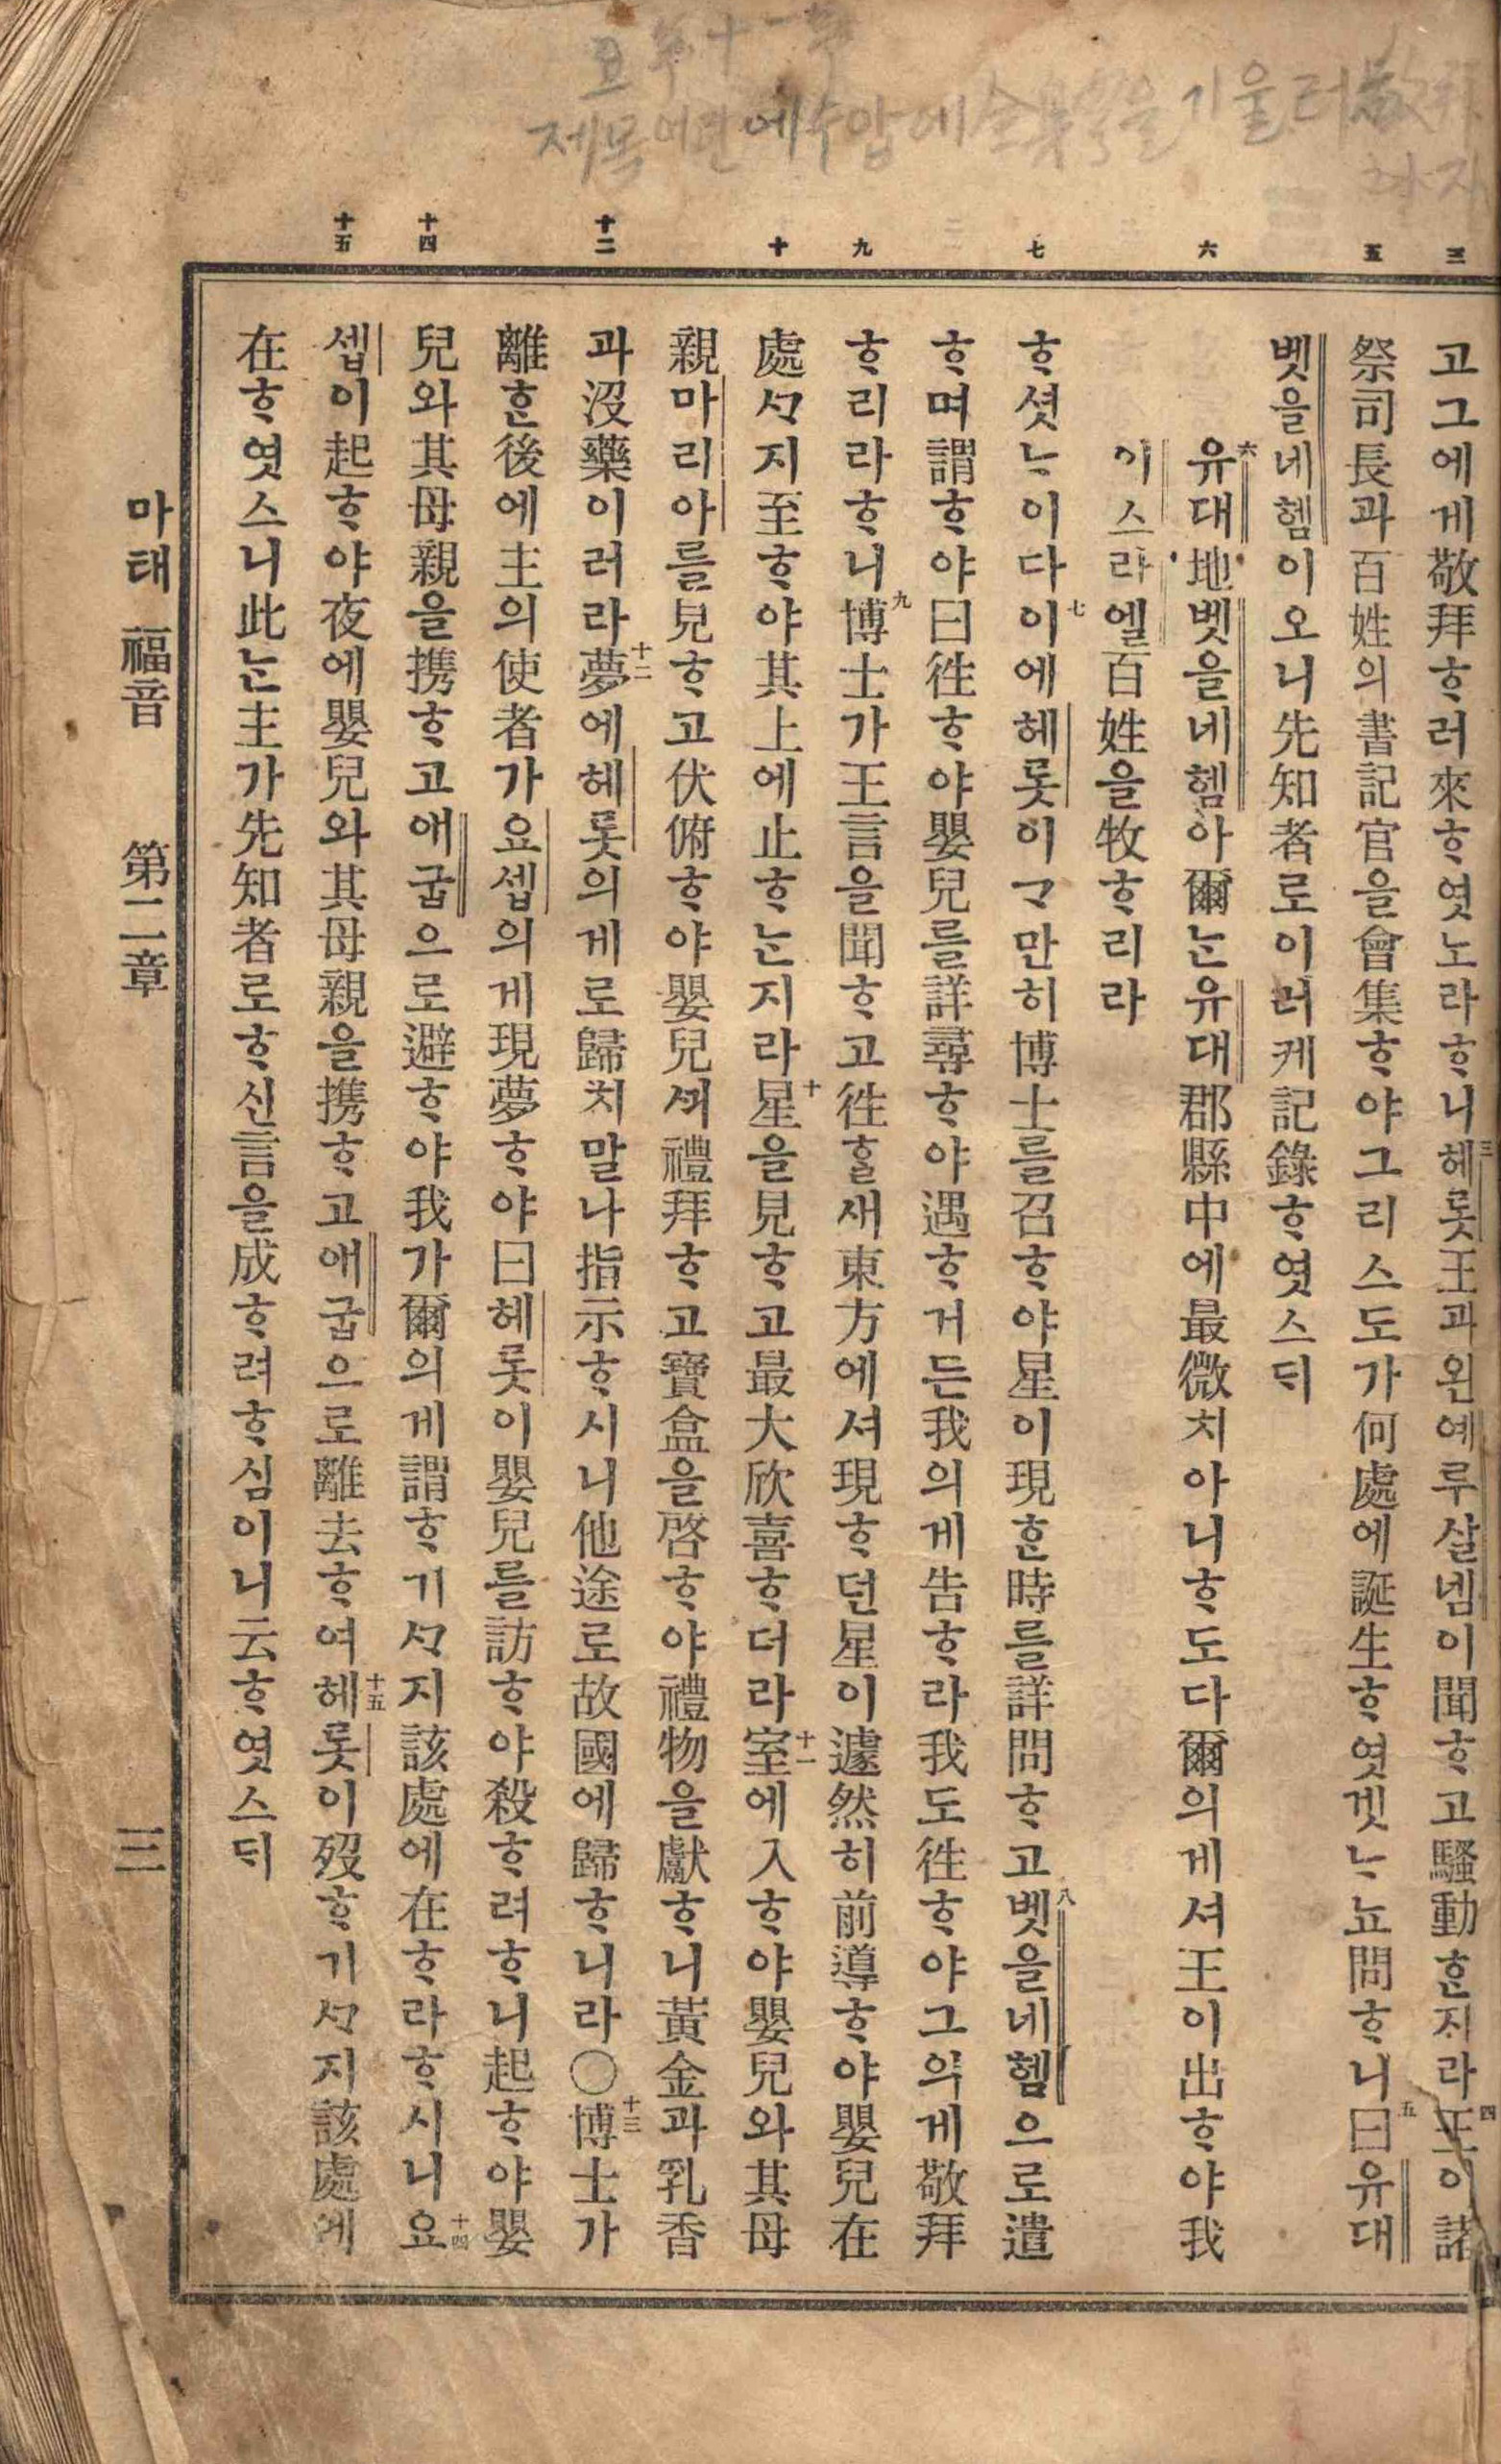 제목 어린 예수 압에 을 기울려 敬拜
하자
三
五
六
七
九
十
十二
十四
十五
고그에게敬拜ᄒᆞ러來ᄒᆞ엿노라ᄒᆞ니三헤롯王과왼예루살넴이聞ᄒᆞ고騷動ᄒᆞᆫ지라四王이諸
祭司長과百姓의書記官을會集ᄒᆞ야그리스도가何處에誕生ᄒᆞ엿겟ᄂᆞ뇨問ᄒᆞ니五曰유대
벳을네헴이오니先知者로이러케記錄ᄒᆞ엿스되
六유대地벳을네헴아爾ᄂᆞᆫ유대郡縣中에最微치아니ᄒᆞ도다爾의게셔王이出ᄒᆞ야我
이스라엘百姓을牧ᄒᆞ리라
ᄒᆞ셧ᄂᆞ이다七이에헤롯이ᄀᆞ만히博士를召ᄒᆞ야星이現ᄒᆞᆫ時를詳問ᄒᆞ고八벳을네헴으로遣
ᄒᆞ며謂ᄒᆞ야曰徃ᄒᆞ야嬰兒를詳尋ᄒᆞ야遇ᄒᆞ거든我의게告ᄒᆞ라我도徃ᄒᆞ야그의게敬拜
ᄒᆞ리라ᄒᆞ니九博士가王言을聞ᄒᆞ고徃ᄒᆞᆯ새東方에셔現ᄒᆞ던星이遽然히前導ᄒᆞ야嬰兒在
處ᄭᆞ지至ᄒᆞ야其上에止ᄒᆞᄂᆞᆫ지라十星을見ᄒᆞ고最大欣喜ᄒᆞ더라十一室에入ᄒᆞ야嬰兒와其母
親마리아를見ᄒᆞ고伏俯ᄒᆞ야嬰兒ᄭᅴ禮拜ᄒᆞ고寶盒을啓ᄒᆞ야禮物을獻ᄒᆞ니黃金과乳香
과沒藥이러라十二夢에헤롯의게로歸치말나指示ᄒᆞ시니他途로故國에歸ᄒᆞ니라○十三博士가
離ᄒᆞᆫ後에主의使者가요셉의게現夢ᄒᆞ야曰헤롯이嬰兒를訪ᄒᆞ야殺ᄒᆞ려ᄒᆞ니起ᄒᆞ야嬰
兒와其母親을携ᄒᆞ고애굽으로避ᄒᆞ야我가爾의게謂ᄒᆞ기ᄭᆞ지該處에在ᄒᆞ라ᄒᆞ시니十四요
셉이起ᄒᆞ야夜에嬰兒와其母親을携ᄒᆞ고애굽으로離去ᄒᆞ여十五헤롯이歿ᄒᆞ기ᄭᆞ지該處에
在ᄒᆞ엿스니此ᄂᆞᆫ主가先知者로ᄒᆞ신言을成ᄒᆞ려ᄒᆞ심이니云ᄒᆞ엿스되
마태福音 第二章 三